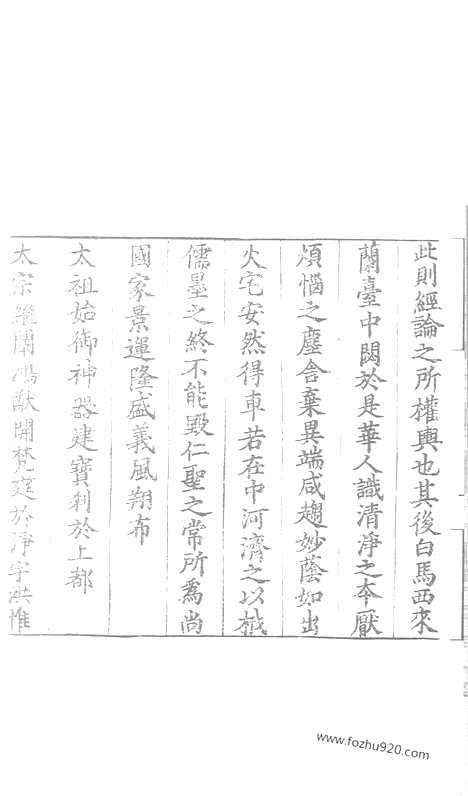 此則經論之所權輿也其後白馬西來
蘭臺中閟於是華人識清淨之本厭
煩惱之塵含棄異端咸趨妙蔭如出
火宅安然得車若在中河濟之以栰
儒墨之終不能毀仁聖之常所爲尚
國家景運隆盛義風翔布
太祖始御神器建寶刹於上都
太宗繼闡鴻猷開梵筵於淨宇洪惟
www.fozhu920.com